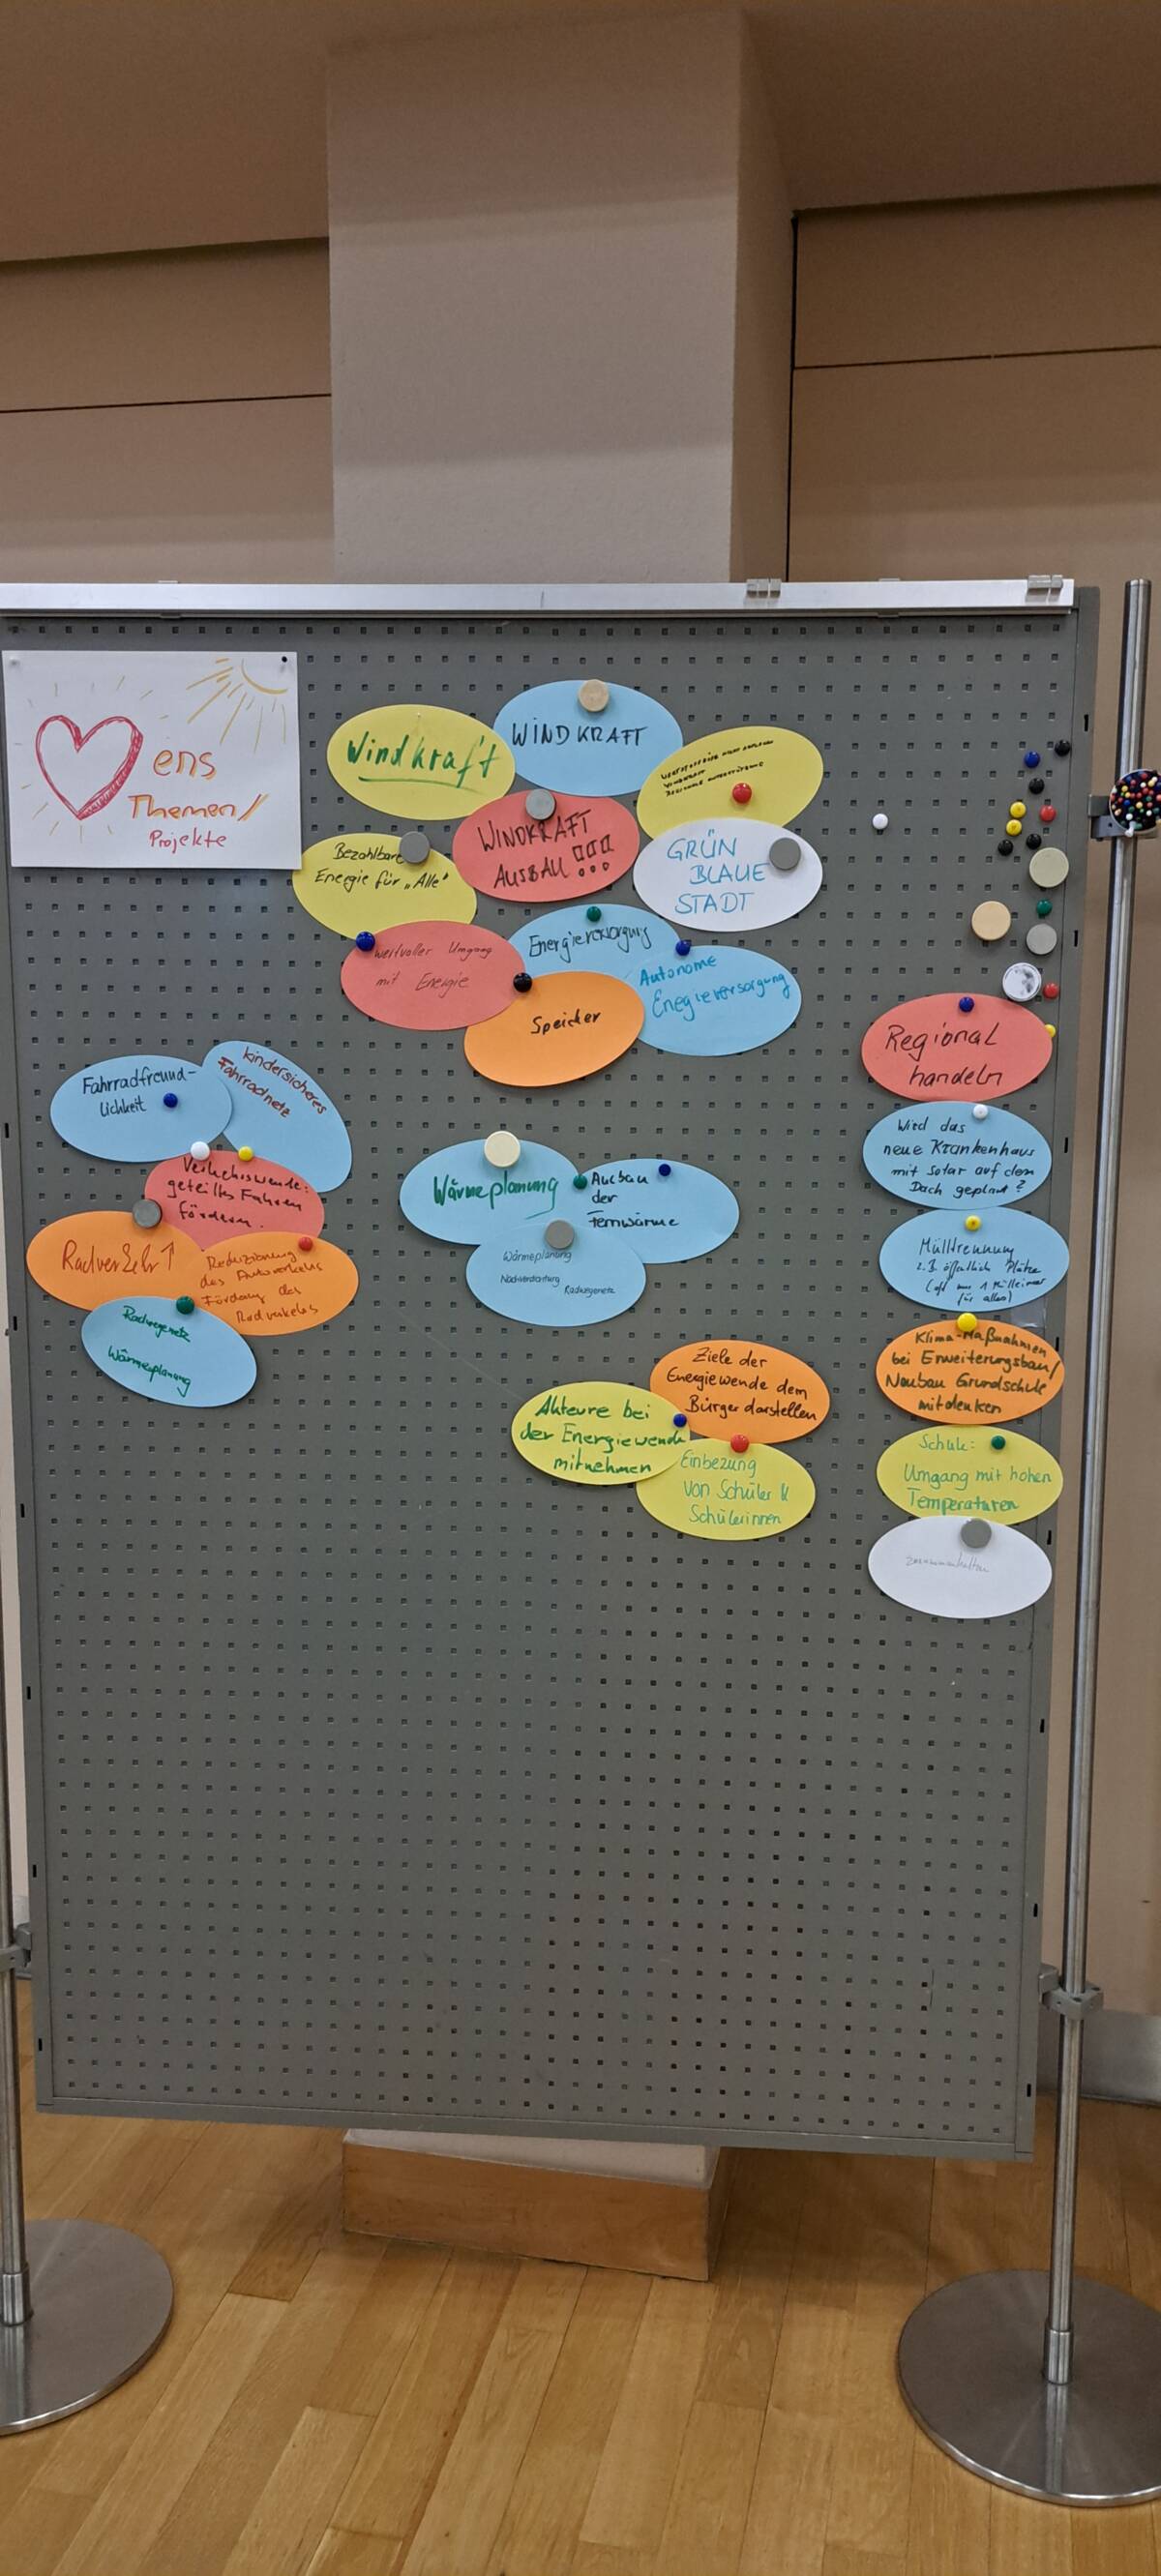 ens
Themen/
Projekte
Windkraft
WINDKRAFT
WINDKRAFT
AUSBAU !!!
Bezahlbare
Energie für „Alle"
GRÜN
BLAUE
STADT
wertvoller Umgang
mit Energie
Energieversorgung
Autonome
Enegieversorgung
Speicher
Fahrradfreund-
lichkeit
kindersicheres
Fahrradnetz
Verkehrswende:
geteiltes Fahren
fördern.
Radverkehr ↑
Reduzierung
des Autoverkehrs
Förderung des
Radverkehrs
Radwegenetz
Wärmeplanung
Wärmeplanung
Ausbau
der
Fernwärme
Wärmeplanung
Nachverdichtung
Radwegenetz
Ziele der
Energiewende dem
Bürger darstellen
Akteure bei
der Energiewende
mitnehmen
Einbezung
von Schüler &
Schülerinnen
Regional
handeln
Wird das
neue Krankenhaus
mit Solar auf dem
Dach geplant?
Mülltrennung
z.B. öffentlich Plätze
(oft nur 1 Mülleimer
für alles)
Klima-Maßnahmen
bei Erweiterungsbau/
Neubau Grundschule
mitdenken
Schule:
Umgang mit hohen
Temperaturen
zusammenhalten